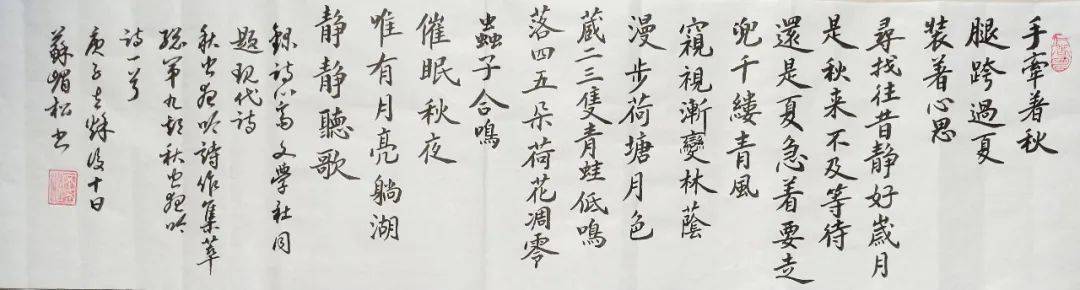 手牽着秋
腿跨過夏
裝着心思
尋找往昔静好歲月
是秋来不及等待
還是夏急着要走
兜千縷青風
窺視漸變林蔭
漫步荷塘月色
蔵二三隻青蛙低鳴
落四五朵荷花凋零
蟲子合鳴
催眠秋夜
唯有月亮躺湖
静静聽歌
錄詩心斋文學社同
題現代詩
秋虫夜吟詩作集萃
總第九期秋虫夜吟
詩一首
庚子立秋後十日
蘇媚松书